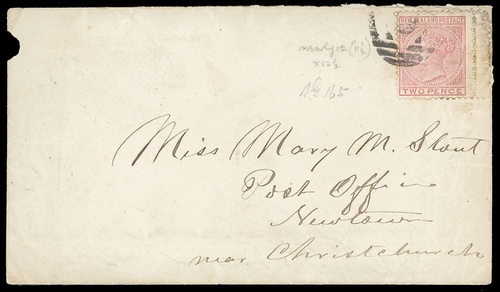 NEW ZEALAND POSTAGE
TWO PENCE
nearly 12 (P½)
x 12½
SG 165
Miss Mary M. Stout
Post Office
Newtown
near Christchurch